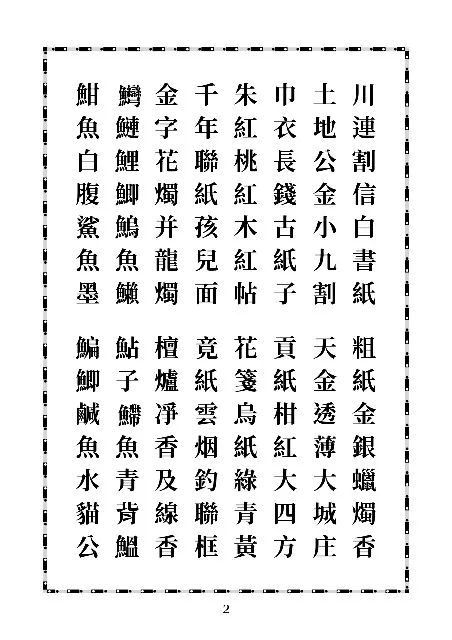 川連割信白書紙
粗紙金銀蠟燭香
土地公金小九割
天金透薄大城庄
巾衣長錢古紙子
貢紙柑紅大四方
朱紅桃紅木紅帖
花箋烏紙綠青黃
千年聯紙孩兒面
竟紙雲烟釣聯框
金字花燭并龍燭
檀爐淨香及線香
鰢鰱鯉鯽鰞魚鱴
鮎子魚青背鰮
鮒魚白腹鯊魚墨
鯿鯽鹹魚水貓公
2